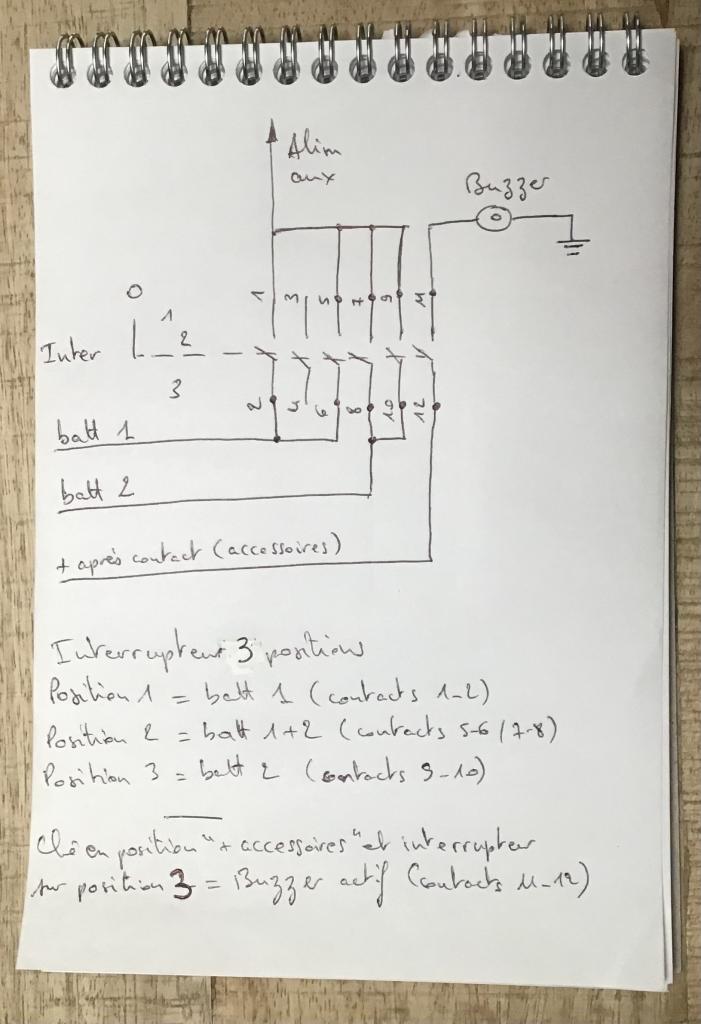 Alim
aux
Buzzer
1 3 5 7 9 11
0
1
Inter
2
3
2 4 6 8 10 12
batt 1
batt 2
+ après contact (accessoires)
Interrupteur 3 positions
Position 1 = batt 1 (contacts 1-2)
Position 2 = batt 1+2 (contacts 5-6 / 7-8)
Position 3 = batt 2 (contacts 9-10)
Clé en position "+ accessoires" et interrupteur
sur position 3 = Buzzer actif (contacts 11-12)